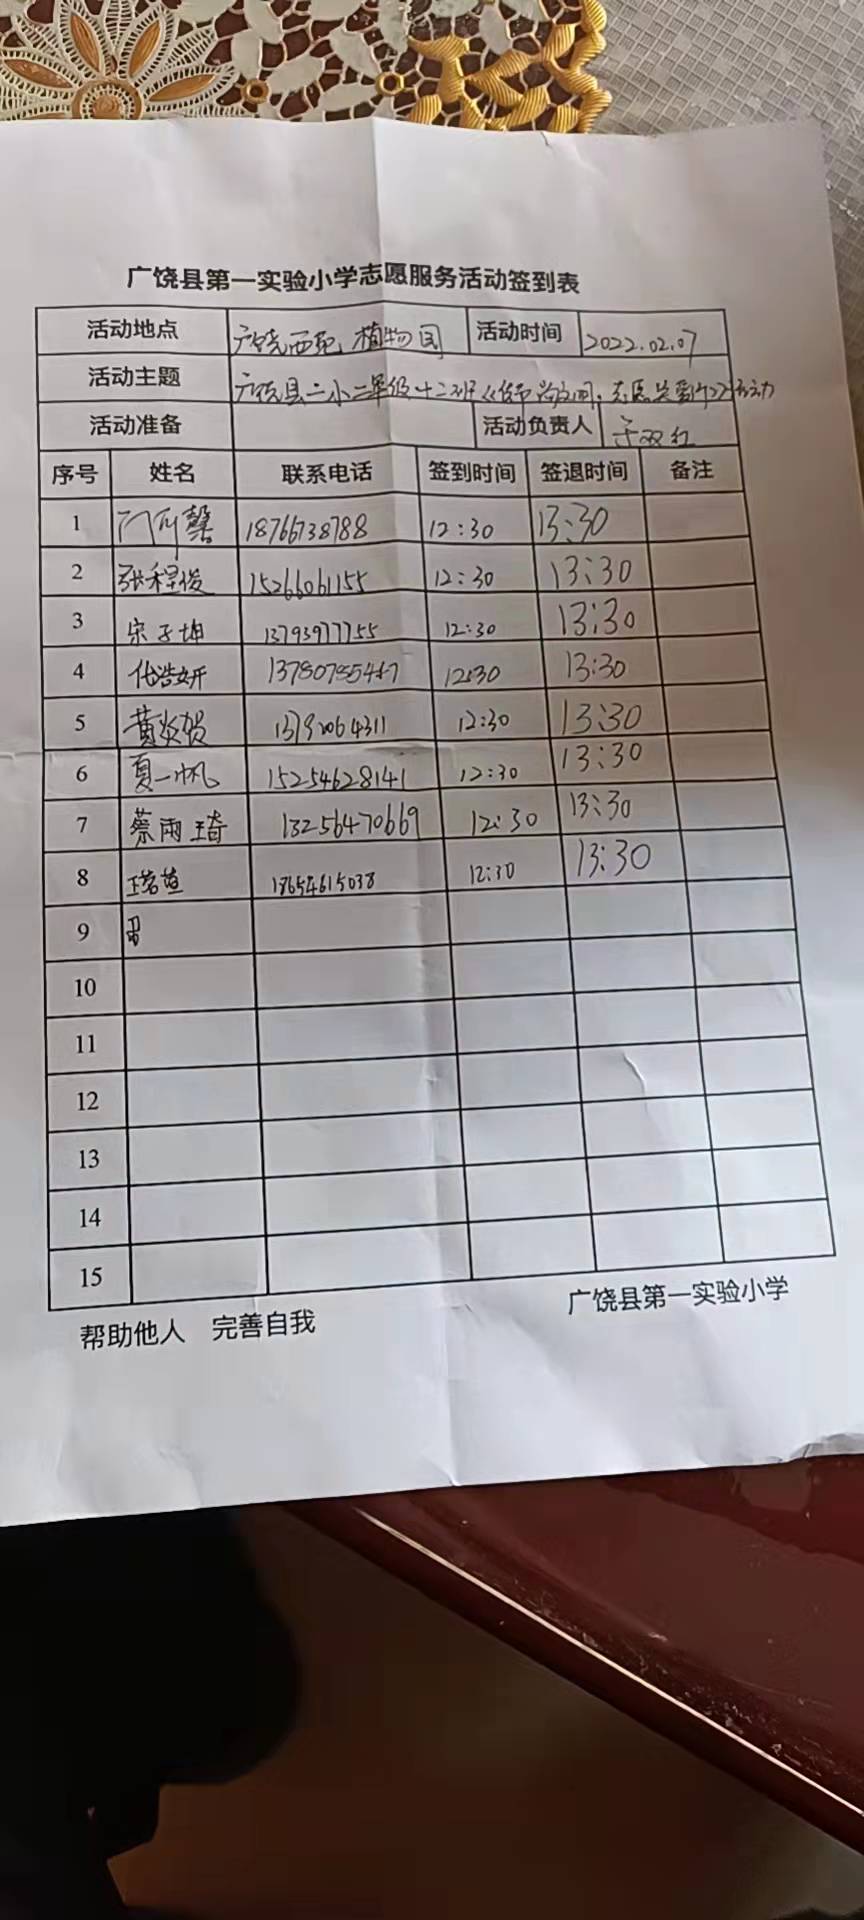 广饶县第一实验小学志愿服务活动签到表
活动地点 广饶西苑 植物园 活动时间 2022.02.07
活动主题 广饶县一小二年级十二班
活动准备 活动负责人
序号 姓名 联系电话 签到时间 签退时间 备注
1 18766738788 12:30 13:30
2 张程俊 15266061155 12:30 13:30
3 宋子坤 13793977755 12:30 13:30
4 代浩妍 12:30 13:30
5 黄炎贺 12:30 13:30
6 夏一帆 15254628141 12:30 13:30
7 蔡雨琦 13256470669 12:30 13:30
8 18654615038 12:30 13:30
9
10
11
12
13
14
15
帮助他人 完善自我 广饶县第一实验小学